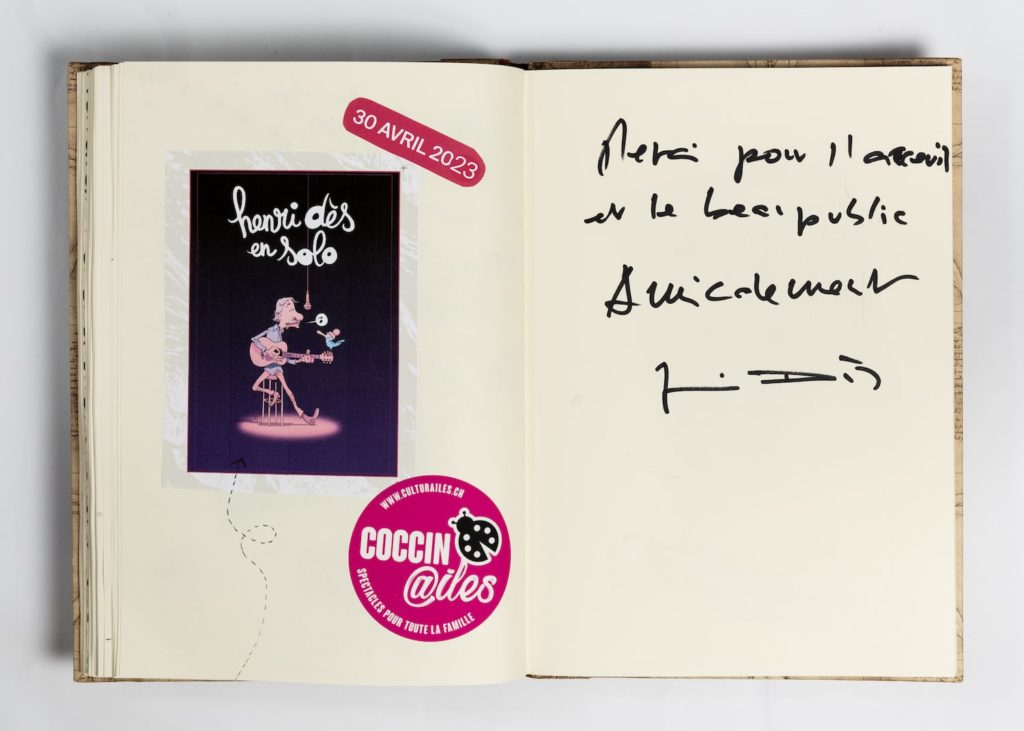 30 AVRIL 2023
henri dès
en solo
WWW.CULTURAILES.CH
COCCIN
@iles
SPECTACLES POUR TOUTE LA FAMILLE
Merci pour l'acceuil
et le beau public
Amicalement
Henri Dès